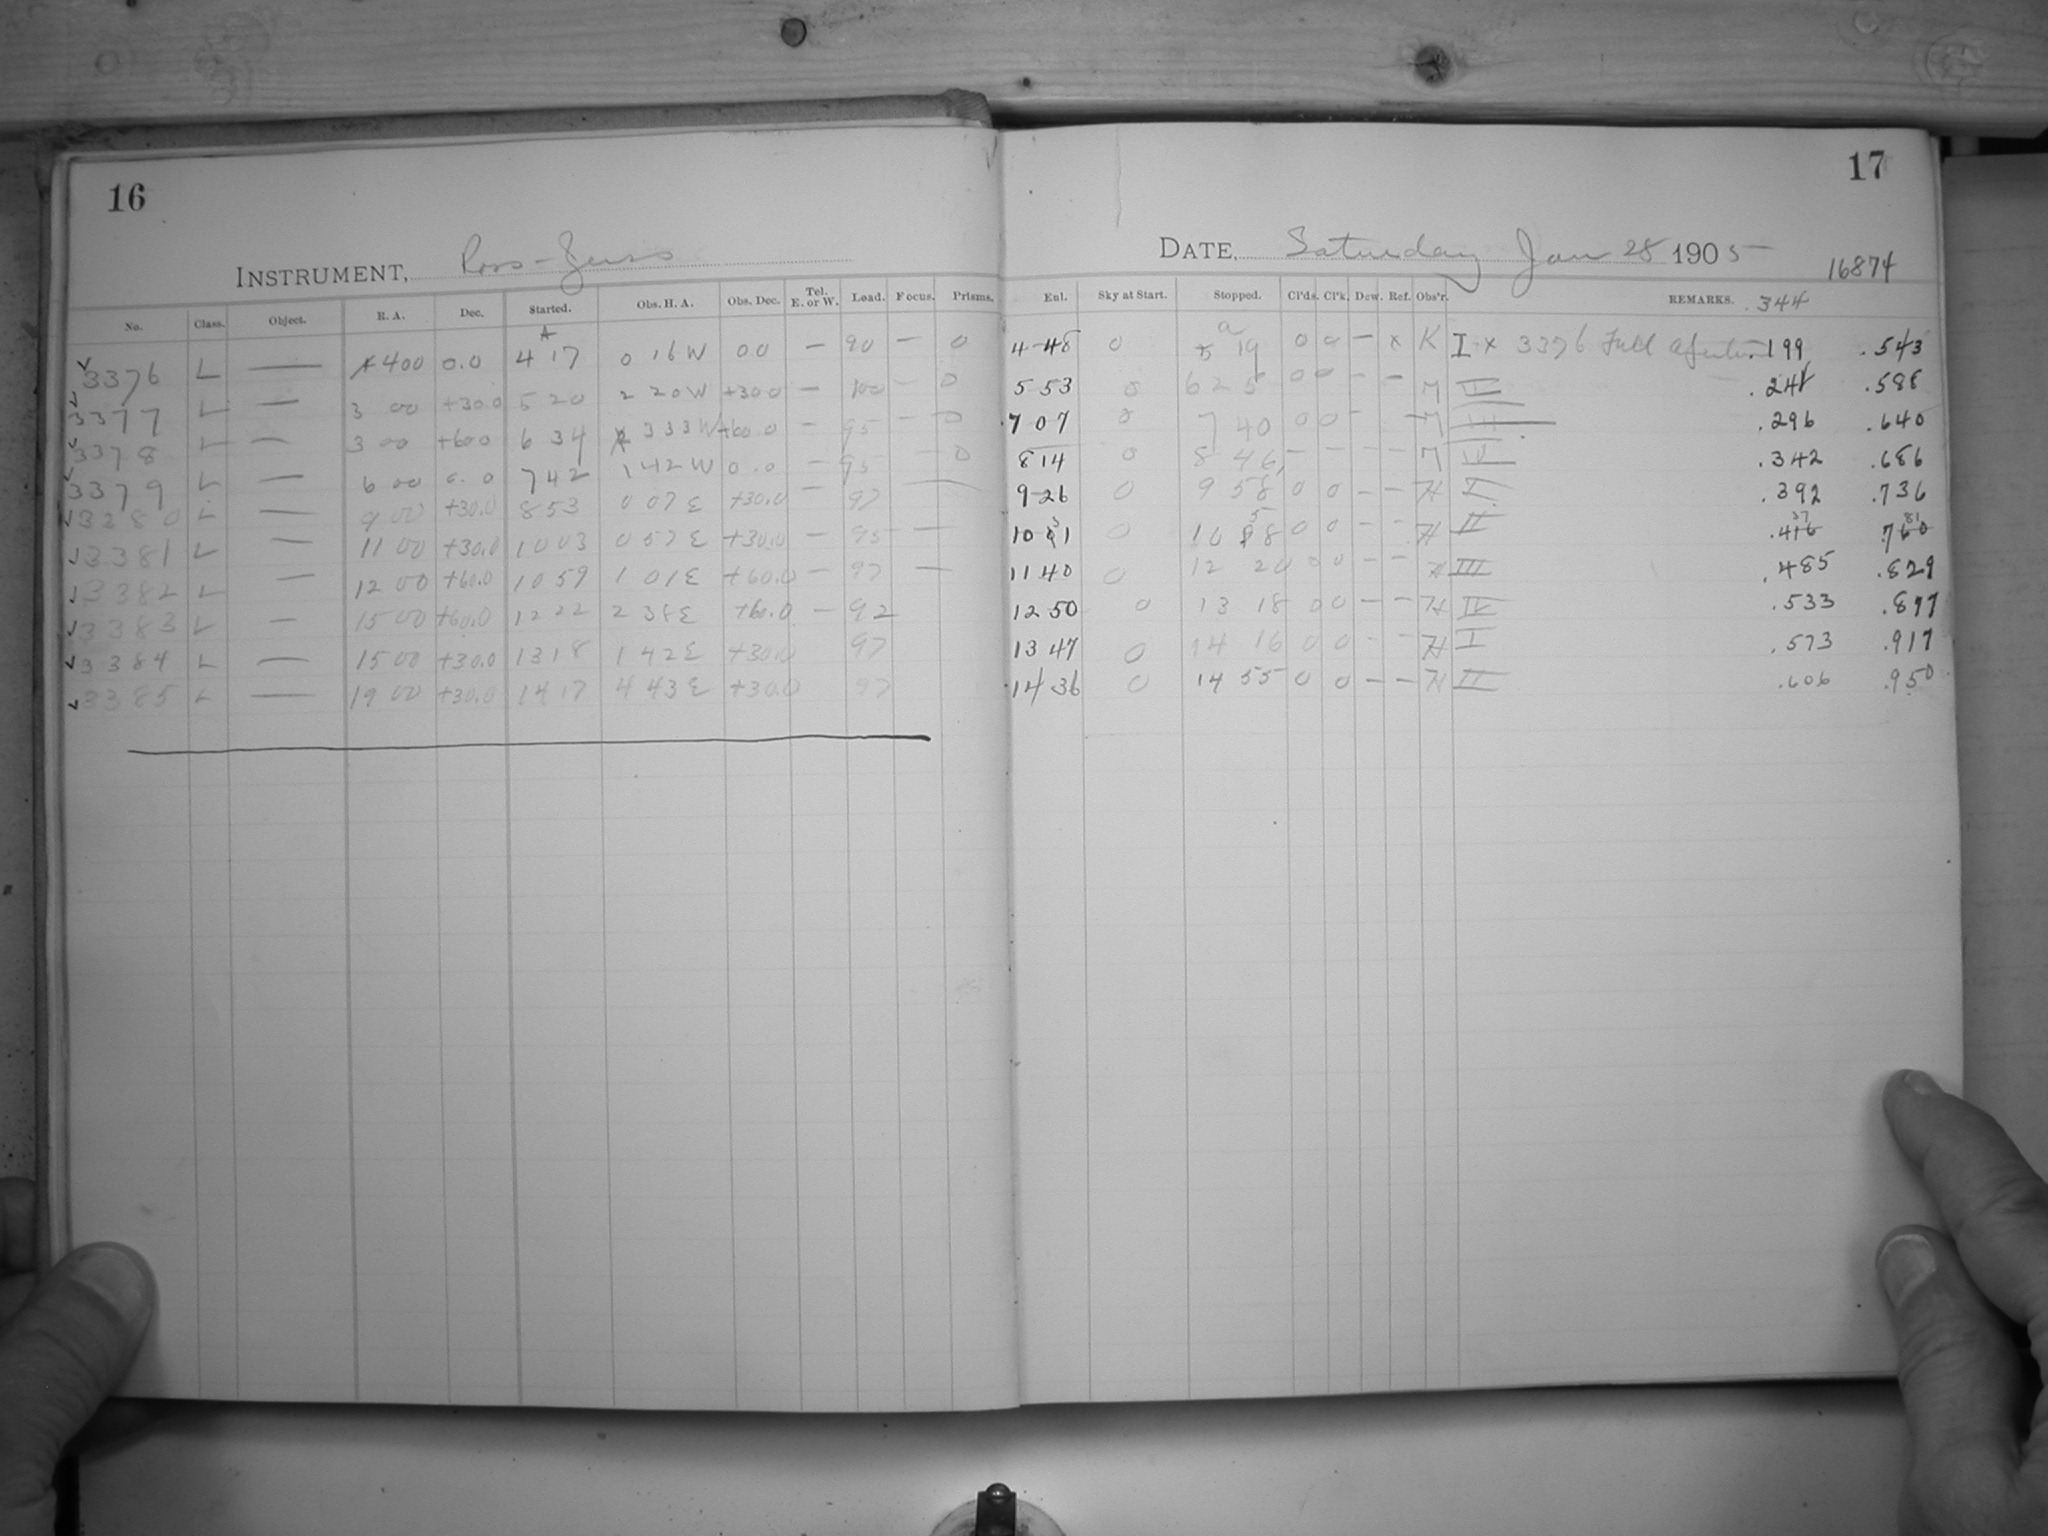 16
INSTRUMENT, Ross-Zeiss
No. Class. Object. R. A. Dec. Started. Obs. H. A. Obs. Dec. Tel. E. or W. Load. Focus. Prisms.
3376 L — 4 00 0.0 4 17 0 16 W 0 0 — 90 — 0
3377 L — 3 00 +30.0 5 20 2 20 W +30 0 — 100 — 0
3378 L — 3 00 +60.0 6 34 3 33 W +60.0 — 95 — 0
3379 L — 6 00 0.0 7 42 1 42 W 0.0 — 95 — 0
3280 L — 9 00 +30.0 8 53 0 07 E +30.0 — 97 —
3381 L — 11 00 +30.0 10 03 0 57 E +30.0 — 95 —
3382 L — 12 00 +60.0 10 59 1 01 E +60.0 — 97 —
3383 L — 15 00 +60.0 12 22 2 38 E +60.0 — 92
3384 L — 15 00 +30.0 13 18 1 42 E +30.0 97
3385 L — 19 00 +30.0 14 17 4 43 E +30.0 97
17
DATE, Saturday Jan 28 1905
16874
Enl. Sky at Start. Stopped. Cl'ds. Cl'k. Dew. Ref. Obs'r. REMARKS. .344
4-48 0 5 19 0 0 — x K I x 3376 Full .199 .543
5 53 0 6 25 0 0 — — M II .241 .588
7 07 0 7 40 0 0 — — M III .296 .640
8 14 0 8 46 — — — — M IV .342 .686
9-26 0 9 58 0 0 — — H I .392 .736
37 81
10 31 0 10 58 0 0 — — H II .416 .760
11 40 0 12 20 0 0 — — H III .485 .829
12 50 0 13 18 0 0 — — H IV .533 .877
13 47 0 14 16 0 0 — — H I .573 .917
14 36 0 14 55 0 0 — — H II .606 .950